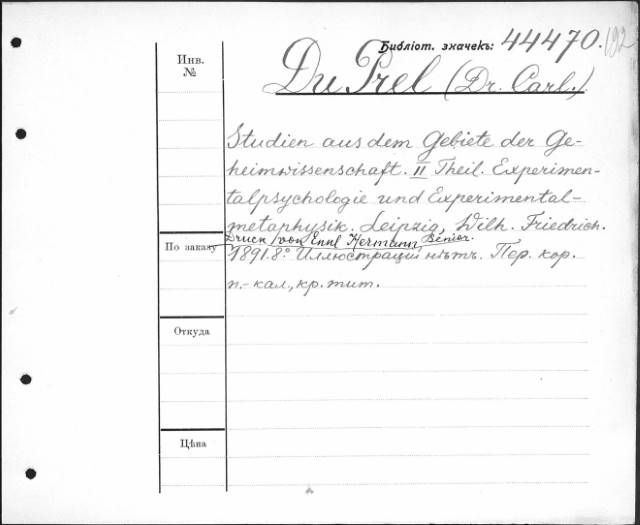 Библіот. значекъ: 44470.
192
Инв.
№
Du Prel (Dr. Carl.)
Studien aus dem Gebiete der Ge-
heimwissenschaft. II Theil. Experimen-
talpsychologie und Experimental-
metaphysik. Leipzig, Wilh. Friedrich.
Druck von Emil Hermann senior.
По заказу
1891. 8.° Иллюстрацій нѣтъ. Пер. кор.
п.-кал., кр. тит.
Откуда
Цѣна